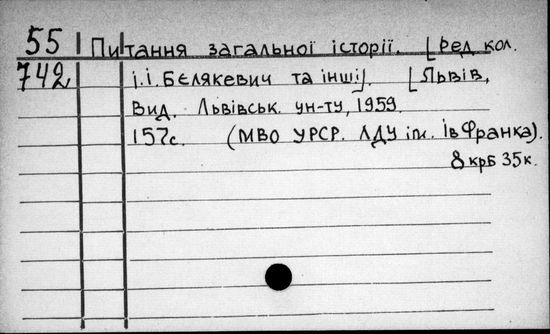 55 Питання загальної історії. [Ред. кол.
742 і.і. Бєлякевич та інші]. [Львів,
Вид. Львівськ. ун-ту, 1959.
157с. (МВО УРСР. ЛДУ ім. Ів Франка).
8 крб 35к.